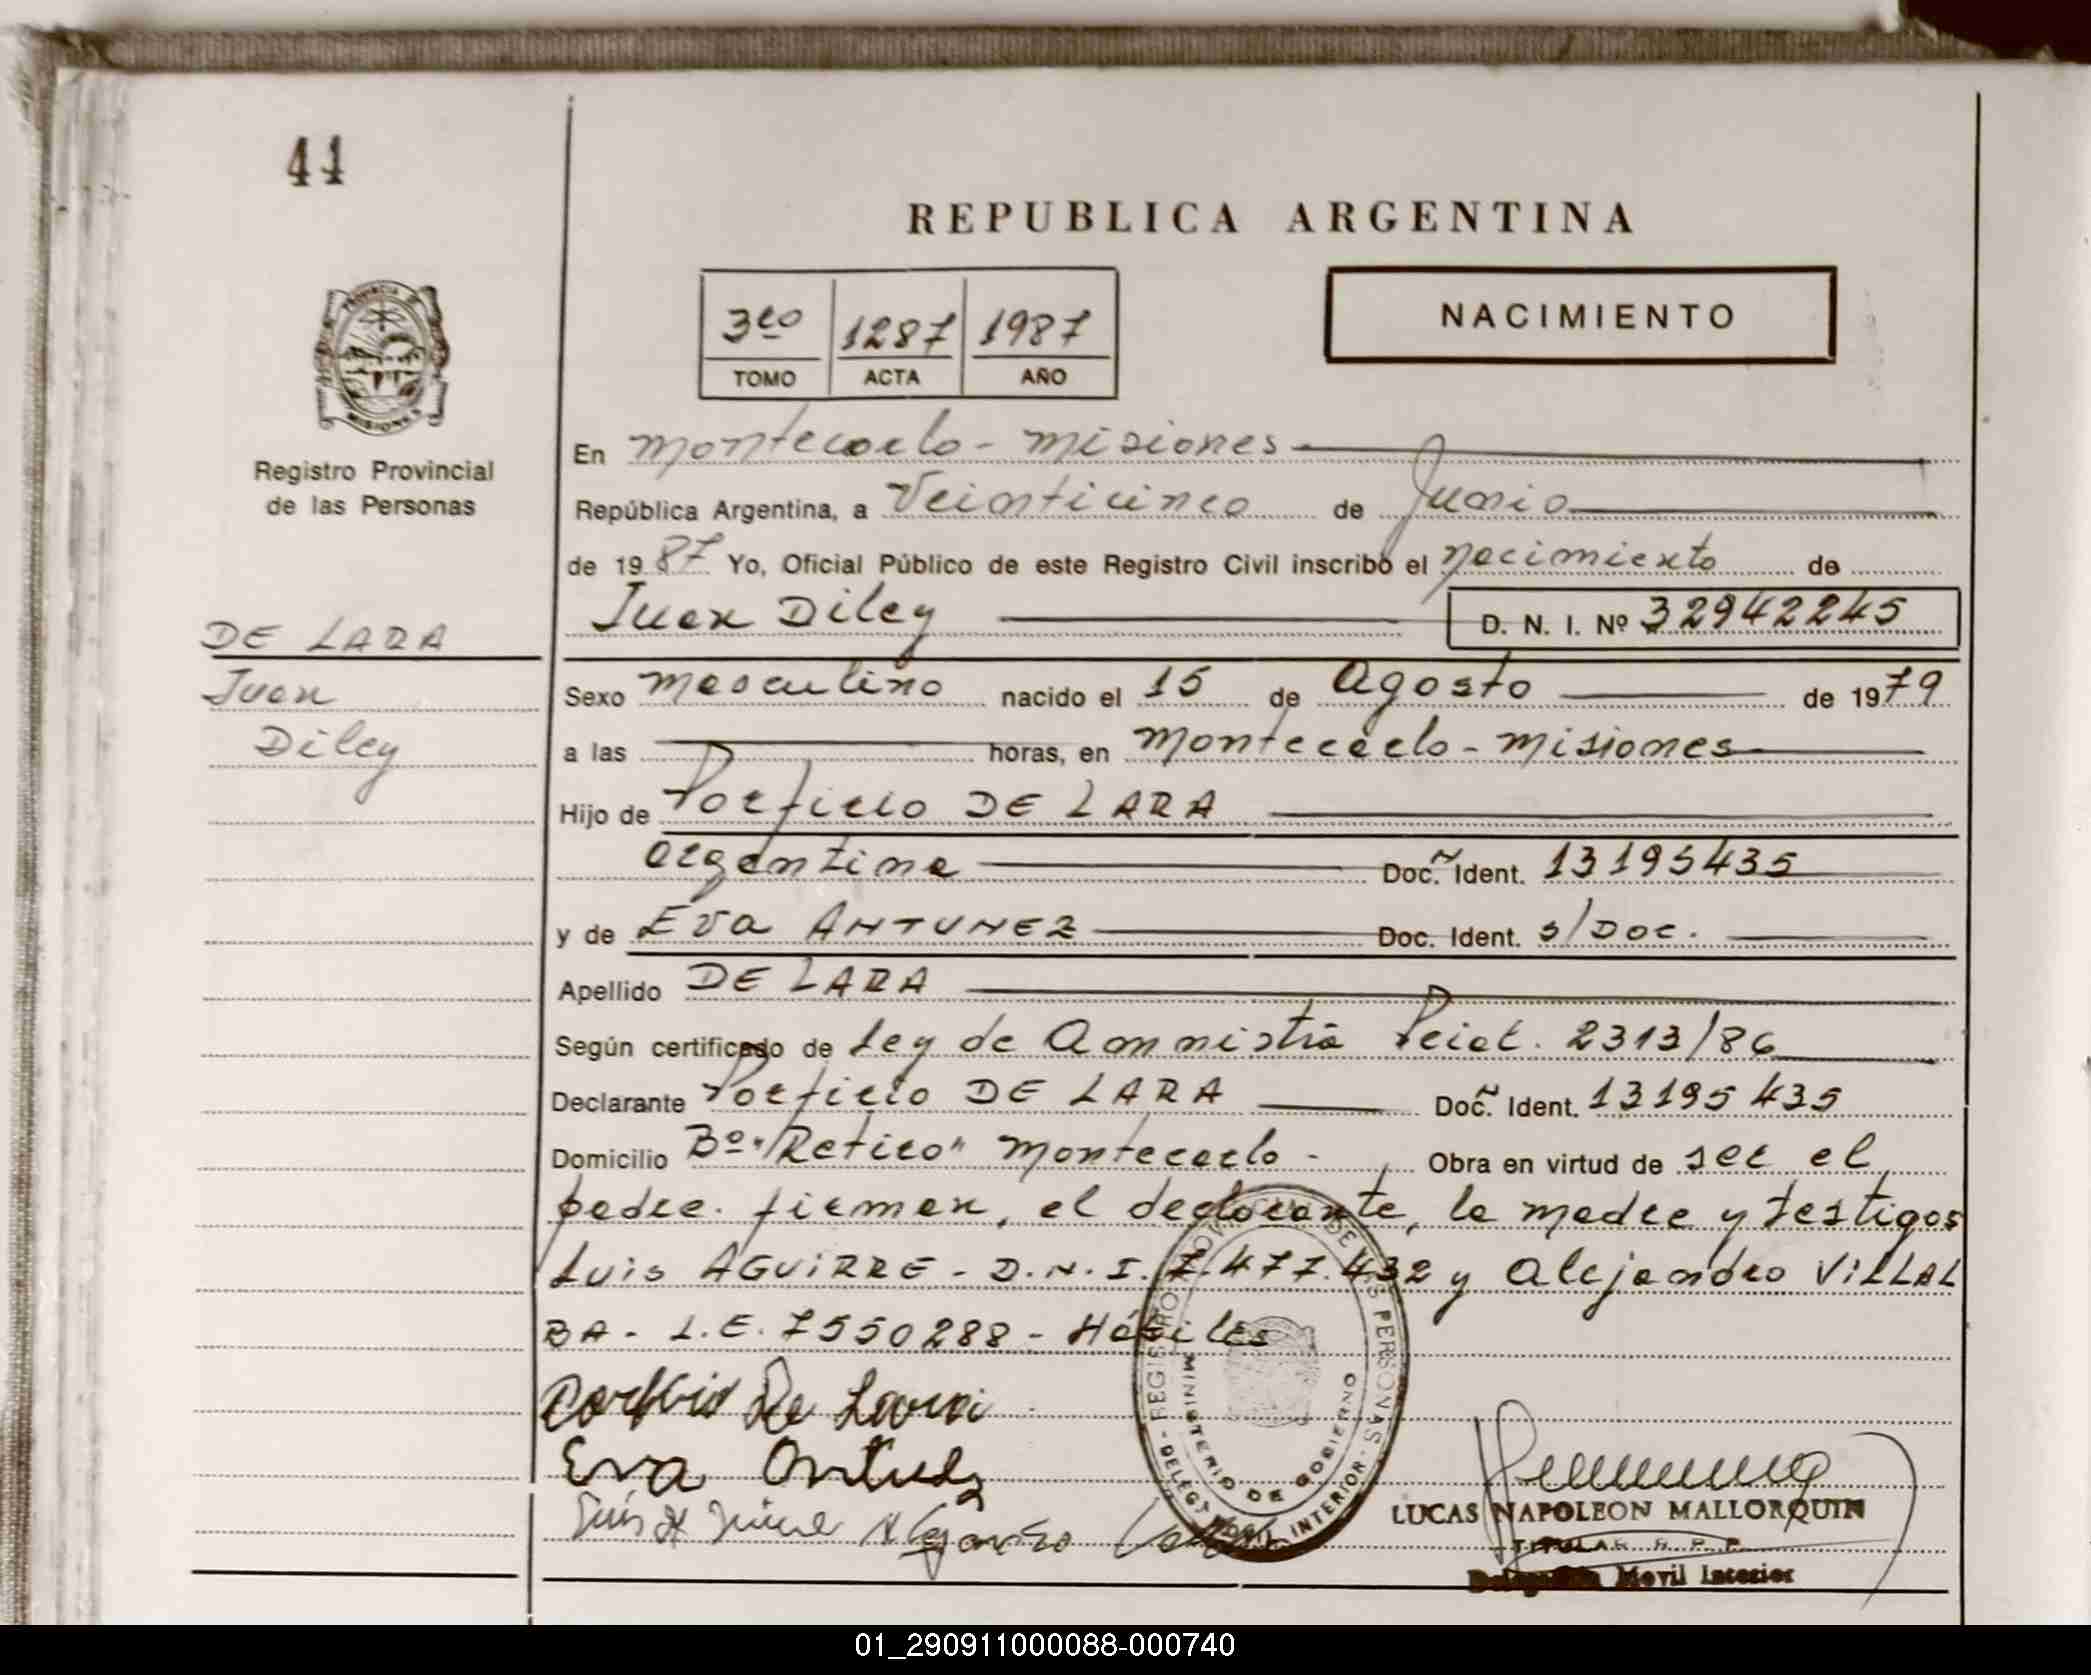 41
REPUBLICA ARGENTINA
NACIMIENTO
3ro 1287 1987
TOMO ACTA AÑO
PROVINCIA DE MISIONES
Registro Provincial
de las Personas
DE LARA
Juan
Diley
En Montecarlo - Misiones
República Argentina, a Veinticinco de Junio
de 1987 Yo, Oficial Público de este Registro Civil inscribo el nacimiento de
Juan Diley D. N. I. Nº 32942245
Sexo masculino nacido el 15 de Agosto de 1979
a las horas, en Montecarlo - Misiones
Hijo de Porfirio DE LARA
argentina Doc. Ident. 13195435
y de Eva ANTUNEZ Doc. Ident. s/Doc.
Apellido DE LARA
Según certificado de Ley de Amnistia 2313/86
Declarante Porfirio DE LARA Doc. Ident. 13195435
Domicilio Bº "Retiro" Montecarlo - Obra en virtud de ser el
padre. firman, el declarante, la madre y testigos
Luis AGUIRRE - D.N.I. 7.477.432 y Alejandro VILLAL
BA - L.E. 7550288 - Hábiles
De Lara
Eva
Alejandro
REGISTRO PROVINCIAL DE LAS PERSONAS
MINISTERIO DE GOBIERNO
INTERIOR
LUCAS NAPOLEON MALLORQUIN
TITULAR R. P. P.
Delegación Movil Interior
01_290911000088-000740